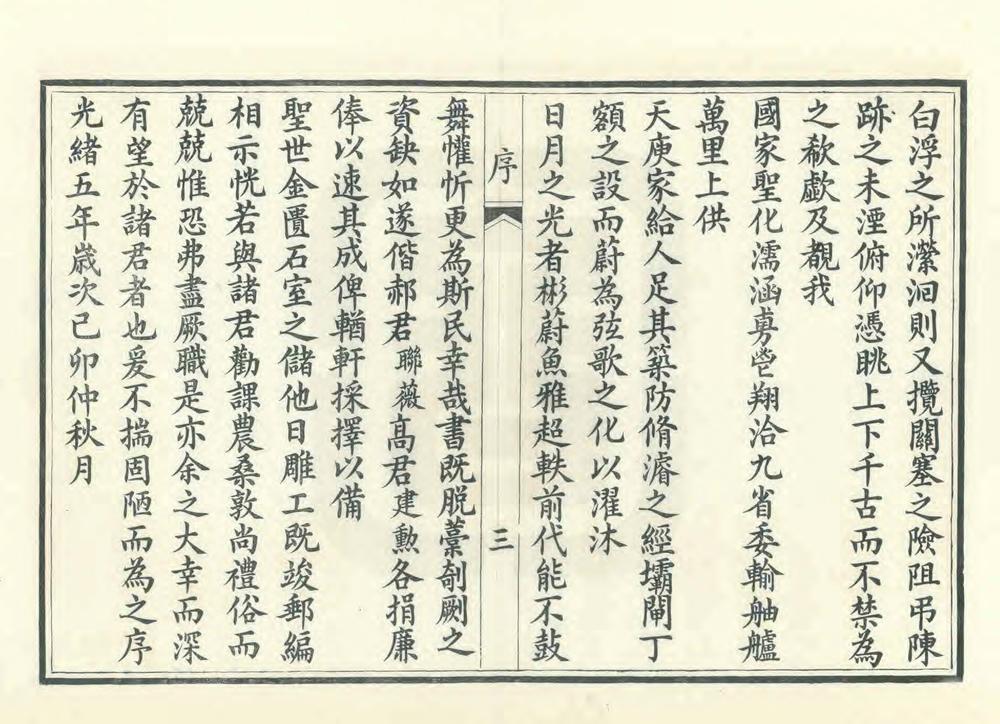 白浮之所瀠洄則又攬關塞之險阻弔陳
跡之未湮俯仰憑眺上下千古而不禁為
之欷歔及覩我
國家聖化濡涵旉翔洽九省委輸舳艫
萬里上供
天庾家給人足其築防脩濬之經壩閘丁
額之設而蔚為弦歌之化以濯沐
日月之光者彬蔚魚雅超軼前代能不鼓
序
三
舞懽忻更為斯民幸哉書既脫藁剞劂之
資缺如遂偕郝君聯薇高君建勳各捐廉
俸以速其成俾輶軒採擇以備
聖世金匱石室之儲他日雕工既竣郵編
相示恍若與諸君勸課農桑敦尚禮俗而
兢兢惟恐弗盡厥職是亦余之大幸而深
有望於諸君者也爰不揣固陋而為之序
光緒五年歲次己卯仲秋月